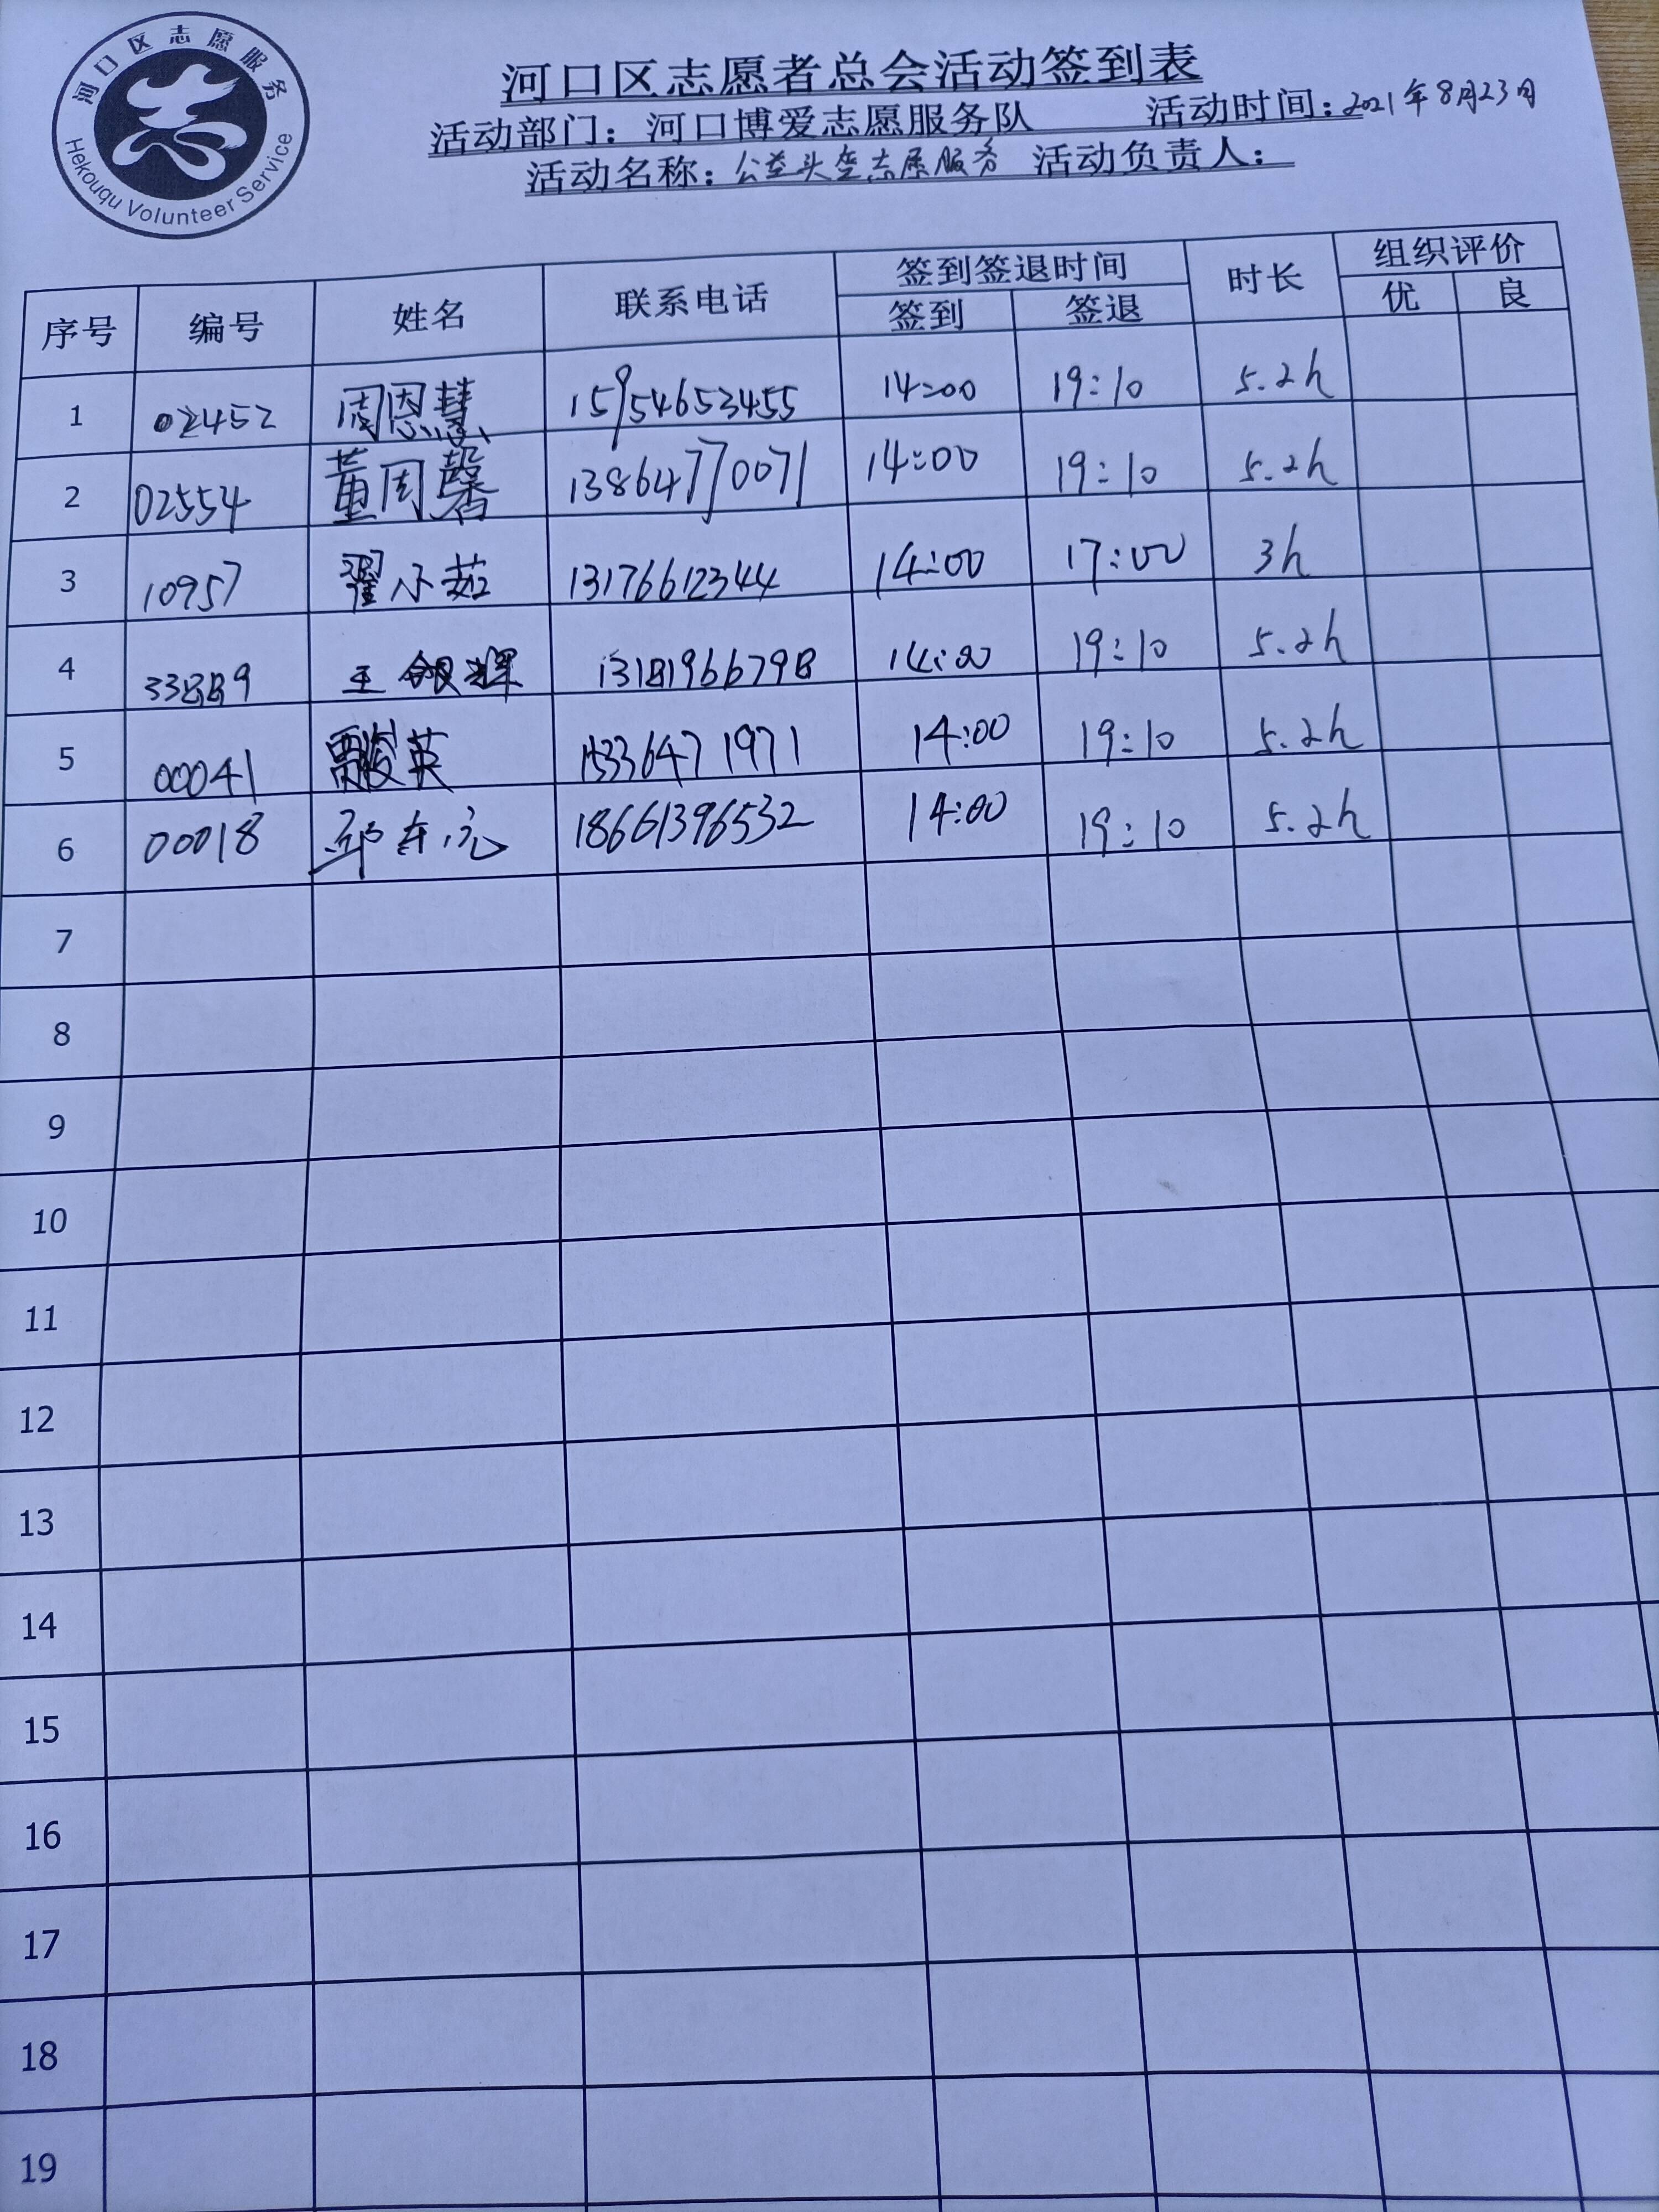 河口区志愿服务
Hekouqu Volunteer Service
河口区志愿者总会活动签到表
活动部门：河口博爱志愿服务队 活动时间：2021年8月23日
活动名称：公益头垄志愿服务 活动负责人：
序号 编号 姓名 联系电话 签到签退时间 时长 组织评价
签到 签退 优 良
1 02452 周恩慧 15954653455 14:00 19:10 5.2h
2 02554 董周馨 13864770071 14:00 19:10 5.2h
3 10957 翟小茹 13176612344 14:00 17:00 3h
4 33889 王银辉 13181966798 14:00 19:10 5.2h
5 00041 英 15336471971 14:00 19:10 5.2h
6 00018 邱东亮 18661396532 14:00 19:10 5.2h
7
8
9
10
11
12
13
14
15
16
17
18
19